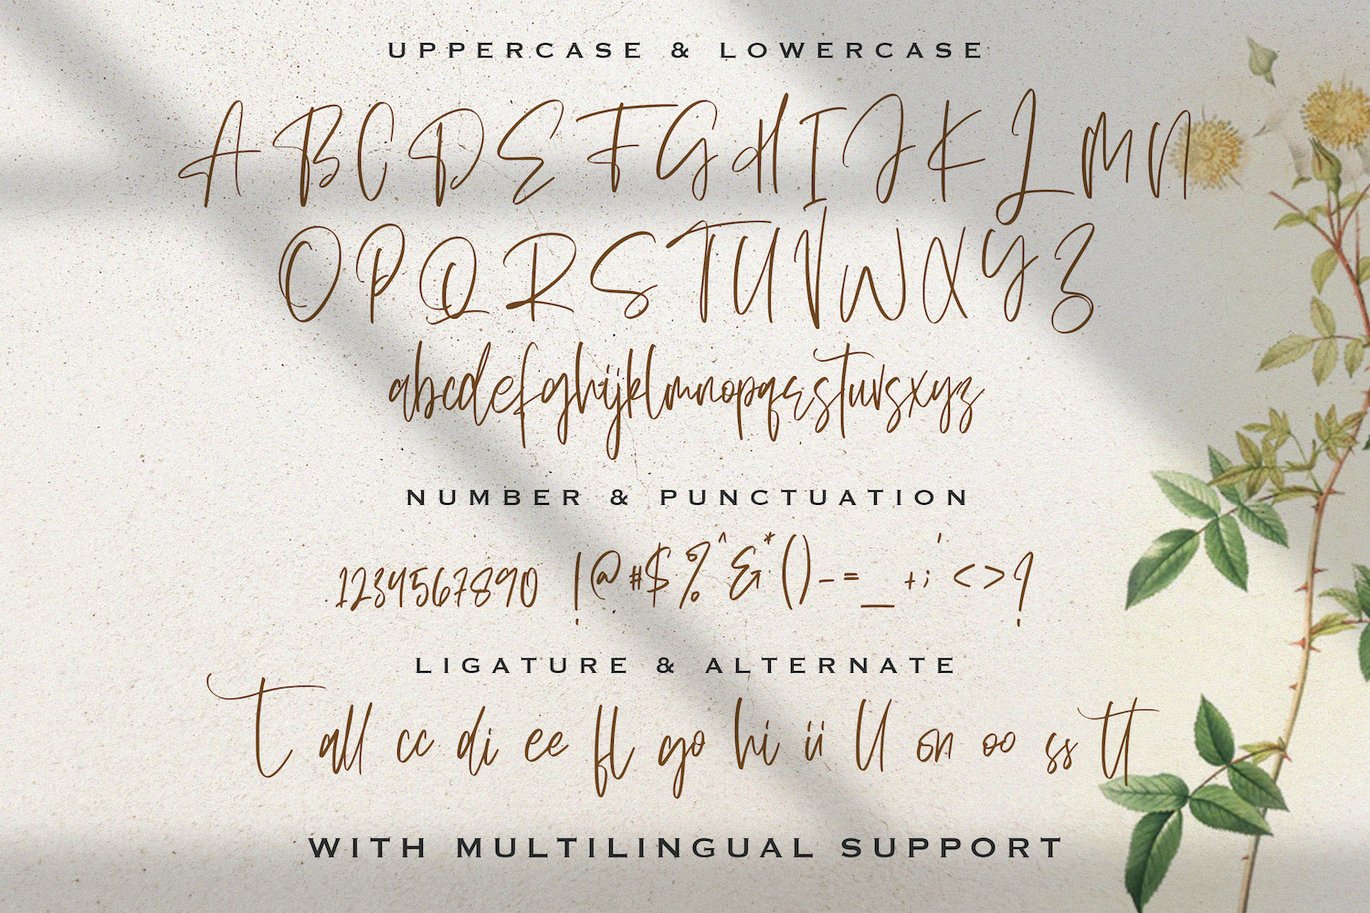 UPPERCASE & LOWERCASE
A B C D E F G H I J K L M N
O P Q R S T U V W X Y Z
abcdefghijklmnopqrstuvwxyz
NUMBER & PUNCTUATION
1234567890 !@#$%^&*()-=_+;'<>?
LIGATURE & ALTERNATE
t all cc di ee fl go hi ii ll on oo ss tt
WITH MULTILINGUAL SUPPORT